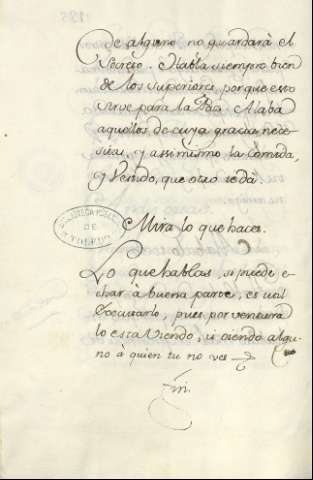 de alguno no guardarà el
Secreto. Habla siempre bien
de los Superiores, porque esto
sirve para la Paz. Alaba
aquellos de cuya gracia nece-
sitas, y assimismo la Comida,
y Vestido, que otro te dà.
BIBLIOTECA
DE
Mira lo que haces.
Lo que hablas, si puede e-
char à buena parte, es util
executarlo, pues por ventura
lo està Viendo, ù oiendo algu-
no à quien tu no ves
fin.